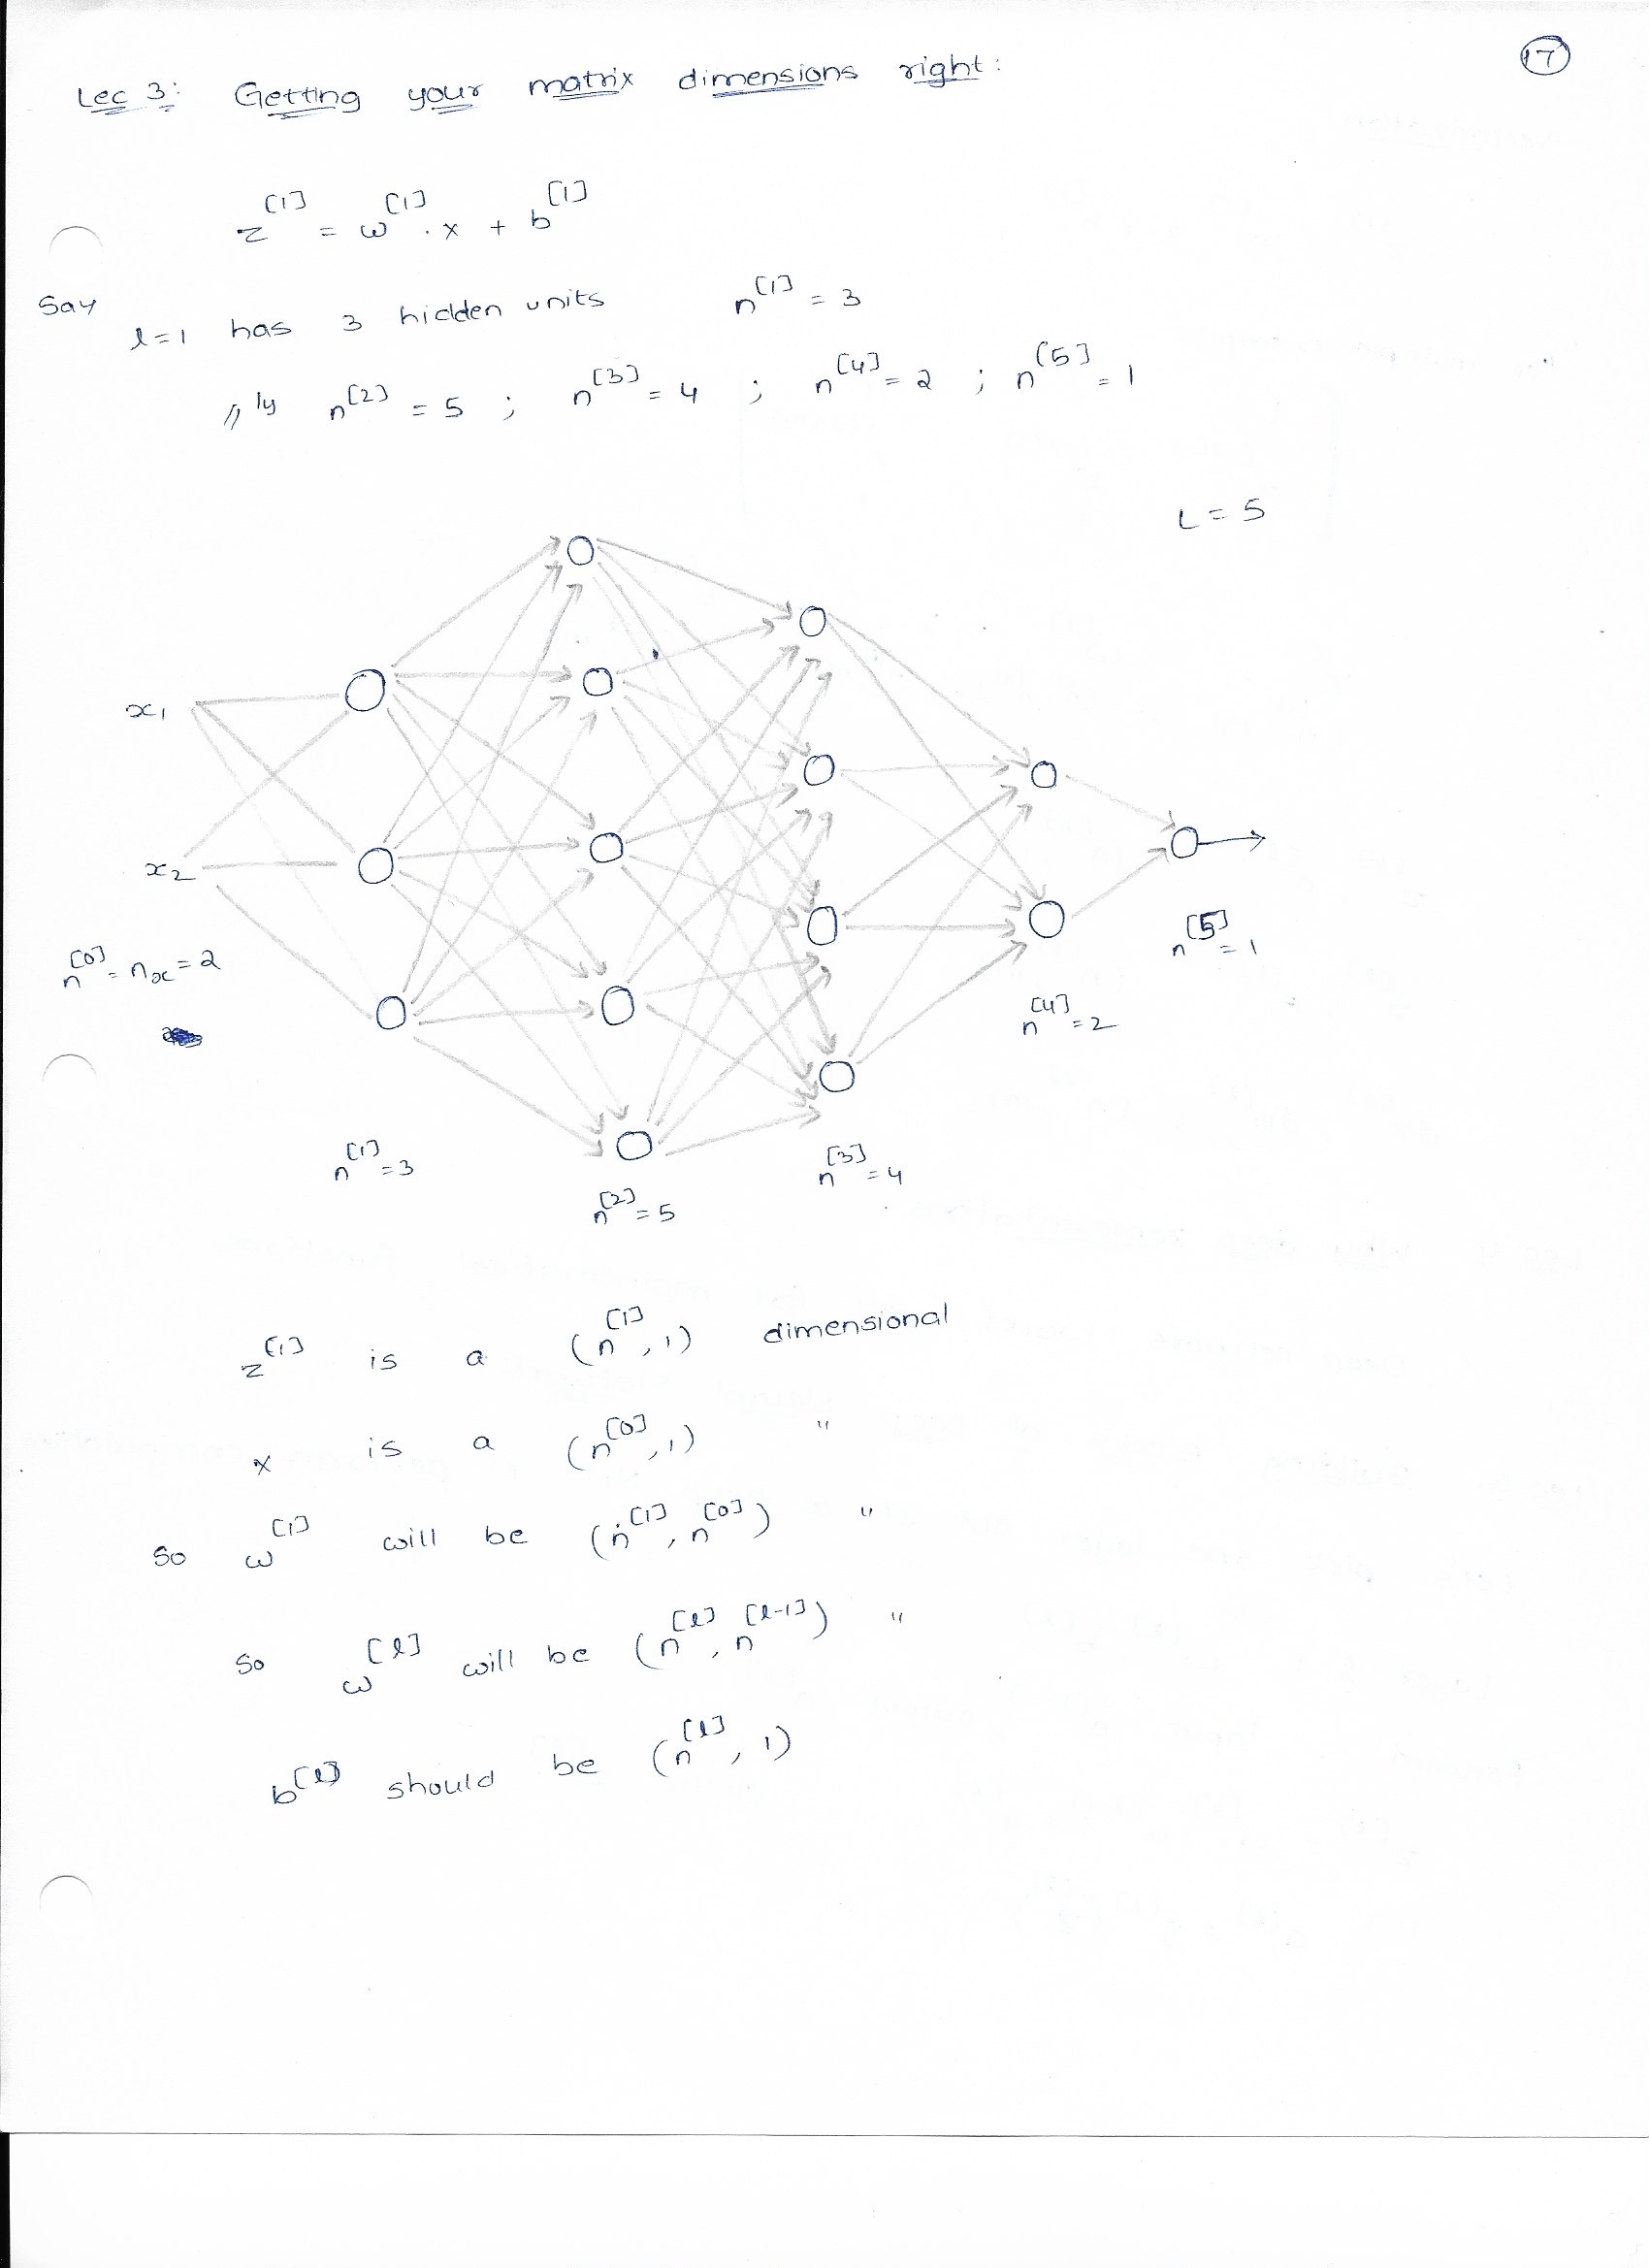 17
Lec 3: Getting your matrix dimensions right:
z^[1] = ω^[1] . x + b^[1]
Say l=1 has 3 hidden units n^[1] = 3
//ly n^[2] = 5 ; n^[3] = 4 ; n^[4] = 2 ; n^[5] = 1
L = 5
x1
x2
n^[0] = nx = 2
n^[1] = 3
n^[2] = 5
n^[3] = 4
n^[4] = 2
n^[5] = 1
z^[1] is a (n^[1], 1) dimensional
x is a (n^[0], 1) "
So ω^[1] will be (n^[1], n^[0]) "
So ω^[l] will be (n^[l], n^[l-1]) "
b^[l] should be (n^[l], 1)